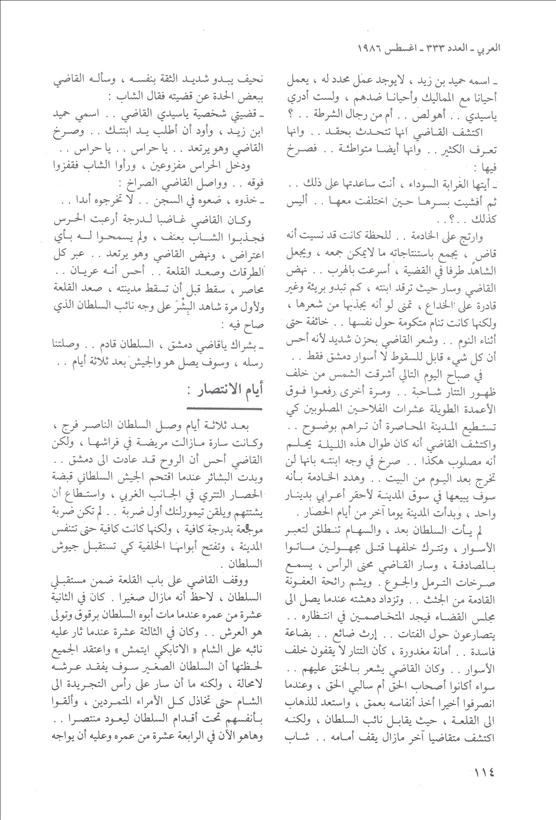 العربي ـ العدد ٣٣٣ ـ اغسطس ١٩٨٦
ـ اسمه حميد بن زيد ، لايوجد عمل محدد له ، يعمل
أحيانا مع المماليك وأحيانا ضدهم ، ولست أدري
ياسيدي . . أهو لص . . أم من رجال الشرطة . . ؟
اكتشف القاضي انها تتحدث بحقد . . وانها
تعرف الكثير . . وانها أيضا متواطئة . . فصرخ
فيها :
ـ أيتها الغرابة السوداء ، أنت ساعدتها على ذلك . .
ثم أفشيت بسرها حين اختلفت معها . . أليس
كذلك . . ؟ . .
وارتج على الخادمة . . للحظة كانت قد نسيت أنه
قاض ، يجمع باستنتاجاته ما لايمكن جمعه ، ويجعل
الشاهد طرفا في القضية ، أسرعت بالهرب . . نهض
القاضي وسار حيث ترقد ابنته ، كم تبدو بريئة وغير
قادرة على الخداع ، تمنى لو أنه يجذبها من شعرها ،
ولكنها كانت تنام متكومة حول نفسها . . خائفة حتى
أثناء النوم . . وشعر القاضي بحزن شديد لأنه أحس
أن كل شيء قابل للسقوط لا أسوار دمشق فقط . .
في صباح اليوم التالي أشرقت الشمس من خلف
ظهور التتار شاحبة . . ومرة أخرى رفعوا فوق
الأعمدة الطويلة عشرات الفلاحين المصلوبين كي
تستطيع المدينة المحاصرة أن تراهم بوضوح . .
واكتشف القاضي أنه كان طوال هذه الليلة يحلم
أنه مصلوب هكذا . . صرخ في وجه ابنته بانها لن
تخرج بعد اليوم من البيت . . وهدد الخادمة بأنه
سوف يبيعها في سوق المدينة لأحقر أعرابي بدينار
واحد ، وبدأت المدينة يوما آخر من أيام الحصار .
لم يأت السلطان بعد ، والسهام تنطلق لتعبر
الأسوار ، وتترك خلفها قتلى مجهولين ماتوا
بالمصادفة ، وسار القاضي محنى الرأس ، يسمع
صرخات الترمل والجوع . ويشم رائحة العفونة
القادمة من الجثث . . وتزداد دهشته عندما يصل الى
مجلس القضاء فيجد المتخاصمين في انتظاره . .
يتصارعون حول الفتات . . إرث ضائع . . بضاعة
فاسدة . . أمانة مغدورة ، كأن التتار لا يقفون خلف
الأسوار . . وكان القاضي يشعر بالحنق عليهم . .
سواء أكانوا أصحاب الحق أم سالبي الحق ، وعندما
انصرفوا أخيرا أخذ أنفاسه بعمق ، واستعد للذهاب
الى القلعة ، حيث يقابل نائب السلطان ، ولكنه
اكتشف متقاضيا آخر مازال يقف أمامه . . شاب
نحيف يبدو شديد الثقة بنفسه ، وسأله القاضي
ببعض الحدة عن قضيته فقال الشاب :
ـ قضيتي شخصية ياسيدي القاضي . . اسمي حميد
ابن زيد ، وأود أن أطلب يد ابنتك . . وصرخ
القاضي وهو يرتعد . . يا حراس . . يا حراس . .
ودخل الحراس مفزوعين ، ورأوا الشاب فقفزوا
فوقه . . وواصل القاضي الصراخ :
ـ خذوه ، ضعوه في السجن . . لا تخرجوه أبدا . .
وكان القاضي غاضبا لدرجة أرعبت الحرس
فجذبوا الشاب بعنف ، ولم يسمحوا له بأي
اعتراض ، ونهض القاضي وهو يرتعد . . عبر كل
الطرقات وصعد القلعة . . أحس أنه عريان . .
محاصر ، سقط قبل أن تسقط مدينته ، صعد القلعة
ولأول مرة شاهد البِشْر على وجه نائب السلطان الذي
صاح فيه :
ـ بشراك ياقاضي دمشق ، السلطان قادم . . وصلتنا
رسله ، وسوف يصل هو والجيش بعد ثلاثة أيام . .
أيام الانتصار :
بعد ثلاثة أيام وصل السلطان الناصر فرج ،
وكانت سارة مازالت مريضة في فراشها ، ولكن
القاضي أحس أن الروح قد عادت الى دمشق . .
وبدت البشائر عندما اقتحم الجيش السلطاني قبضة
الحصار التتري في الجانب الغربي ، واستطاع أن
يشتتهم ويلقن تيمورلنك أول ضربة . . لم تكن ضربة
موجعة بدرجة كافية ، ولكنها كانت كافية حتى تتنفس
المدينة ، وتفتح أبوابها الخلفية كي تستقبل جيوش
السلطان .
ووقف القاضي على باب القلعة ضمن مستقبلي
السلطان ، لاحظ أنه مازال صغيرا . كان في الثانية
عشرة من عمره عندما مات أبوه السلطان برقوق وتولى
هو العرش . . وكان في الثالثة عشرة عندما ثار عليه
نائبه على الشام « الاتابكي ايتمش » واعتقد الجميع
لحظتها أن السلطان الصغير سوف يفقد عرشه
لامحالة ، ولكنه ما أن سار على رأس التجريدة الى
الشام حتى تخاذل كل الأمراء المتمردين ، وألقوا
بأنفسهم تحت أقدام السلطان ليعود منتصرا . .
وهاهو الآن في الرابعة عشرة من عمره وعليه أن يواجه
١١٤